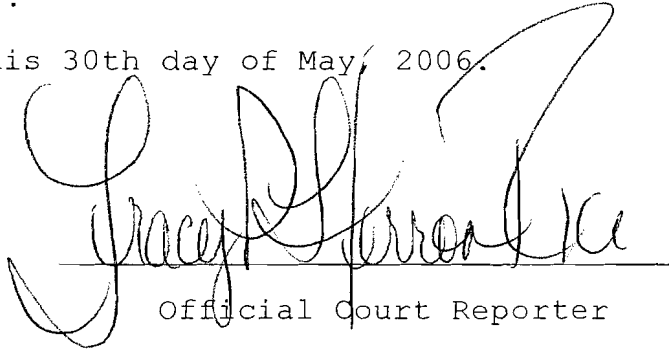 his 30th day of May, 2006.
Tracy Herron
Official Court Reporter